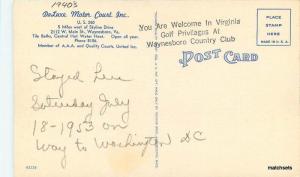 1940's
DeLuxe Motor Court Inc.
U. S. 250
5 Miles west of Skyline Drive
2112 W. Main St., Waynesboro, Va.
Tile Baths, Central Hot Water Heat. Open all year
Phone 8186
Member of A.A.A. and Quality Courts, United Inc.
You Are Welcome In Virginia
Golf Privileges At
Waynesboro Country Club
POST CARD
PLACE
STAMP
HERE
MADE IN U.S.A.
Stayed here
Saturday July
18-1953 on
way to Washington DC
matchsets.com